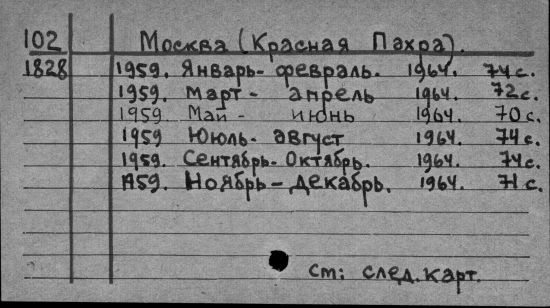 102 Москва (Красная Пахра).
1828 1959. Январь - февраль. 1964. 74 с.
1959. Март - апрель 1964. 72 с.
1959. Май - июнь 1964. 70 с.
1959 Июль - август 1964. 74 с.
1959. Сентябрь - Октябрь. 1964. 74 с.
1959. Ноябрь - декабрь. 1964. 71 с.
ст: след. карт.